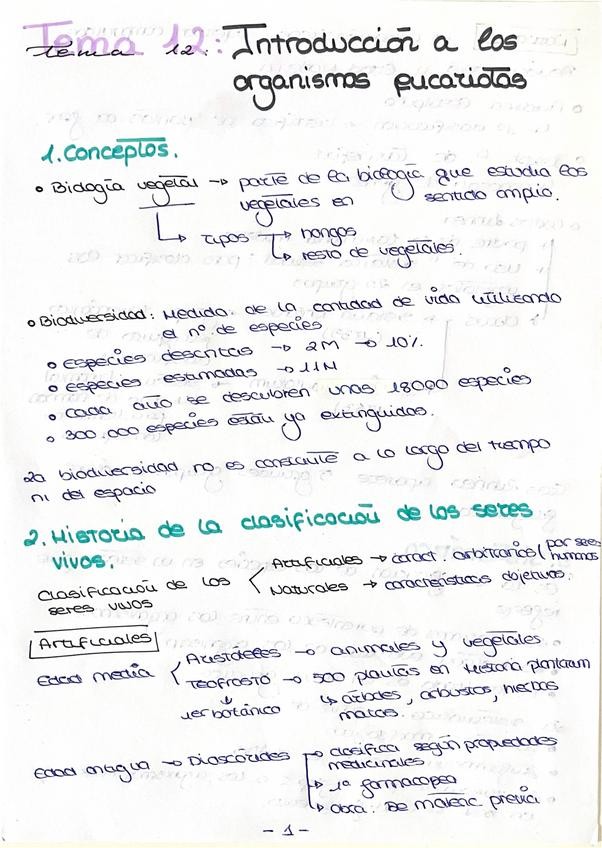 Tema 12: Introducción a los
tema 12:
organismos eucariotas
1. Conceptos.
• Biología vegetal → parte de la biología que estudia los
vegetales en sentido amplio.
↳ tipos → hongos
↳ resto de vegetales.
• Biodiversidad: Medida de la cantidad de vida utilizando
el nº de especies
• especies descritas → 2M → 10%.
• especies estimadas → 11M
• cada año se descubren unas 18000 especies
• 300.000 especies están ya extinguidas.
La biodiversidad no es constante a lo largo del tiempo
ni del espacio
2. Historia de la clasificación de los seres
vivos.
Clasificación de los seres vivos
Artificiales → caract. arbitrarios (por seres humanos
Naturales → características objetivas.
Artificiales
Edad media
Aristóteles → animales y vegetales
Teofrasto → 500 plantas en Historia plantarum
↓ 1er botánico
↳ árboles, arbustos, hierbas
matas.
Edad antigua → Dioscórides → clasifica según propiedades
medicinales
→ 1ª farmacopea
↳ obra: De materia previa
- 1 -